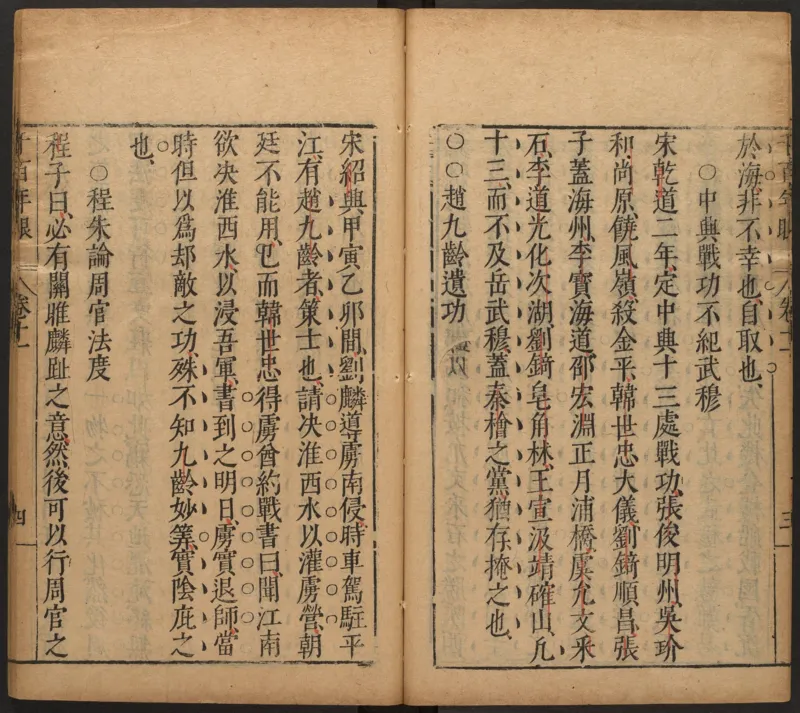 千百年眼 卷十一 三
於海非不幸也自取也
○中興戰功不紀武穆
宋乾道二年定中興十三處戰功張俊明州吳玠
和尚原饒風嶺殺金平韓世忠大儀劉錡順昌張
子蓋海州李寶海道邵宏淵正月浦橋虞允文釆
石李道光化次湖劉錡皂角林王宣汲靖確山凡
十三而不及岳武穆蓋秦檜之黨猶存掩之也
○○趙九齡遺功
宋紹興甲寅乙夘間劉麟導虜南侵時車駕駐平
江有趙九齡者策士也請决淮西水以灌虜營朝
廷不能用已而韓世忠得虜酋約戰書曰聞江南
欲决淮西水以浸吾軍書到之明日虜實退師當
時但以爲却敵之功殊不知九齡妙筭實陰庇之
也
○程朱論周官法度
程子曰必有關雎麟趾之意然後可以行周官之
千百年眼 卷十一 四